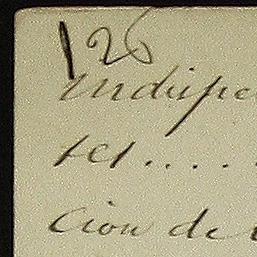 126
indispe
tes....
cion de